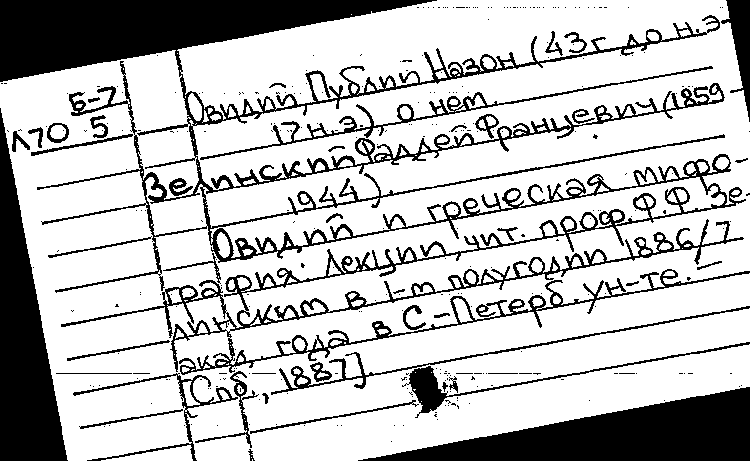 Б-7
Л70 5
Овидий, Публий Назон (43 г. до н.э-
17 н.э.), о нем.
Зелинский, Фаддей Францевич (1859-
1944).
Овидий и греческая мифо-
графия. Лекции, чит. проф. Ф.Ф. Зе-
линским в 1-м полугодии 1886/7
акад. года в С.-Петерб. ун-те. –
[Спб., 1887].